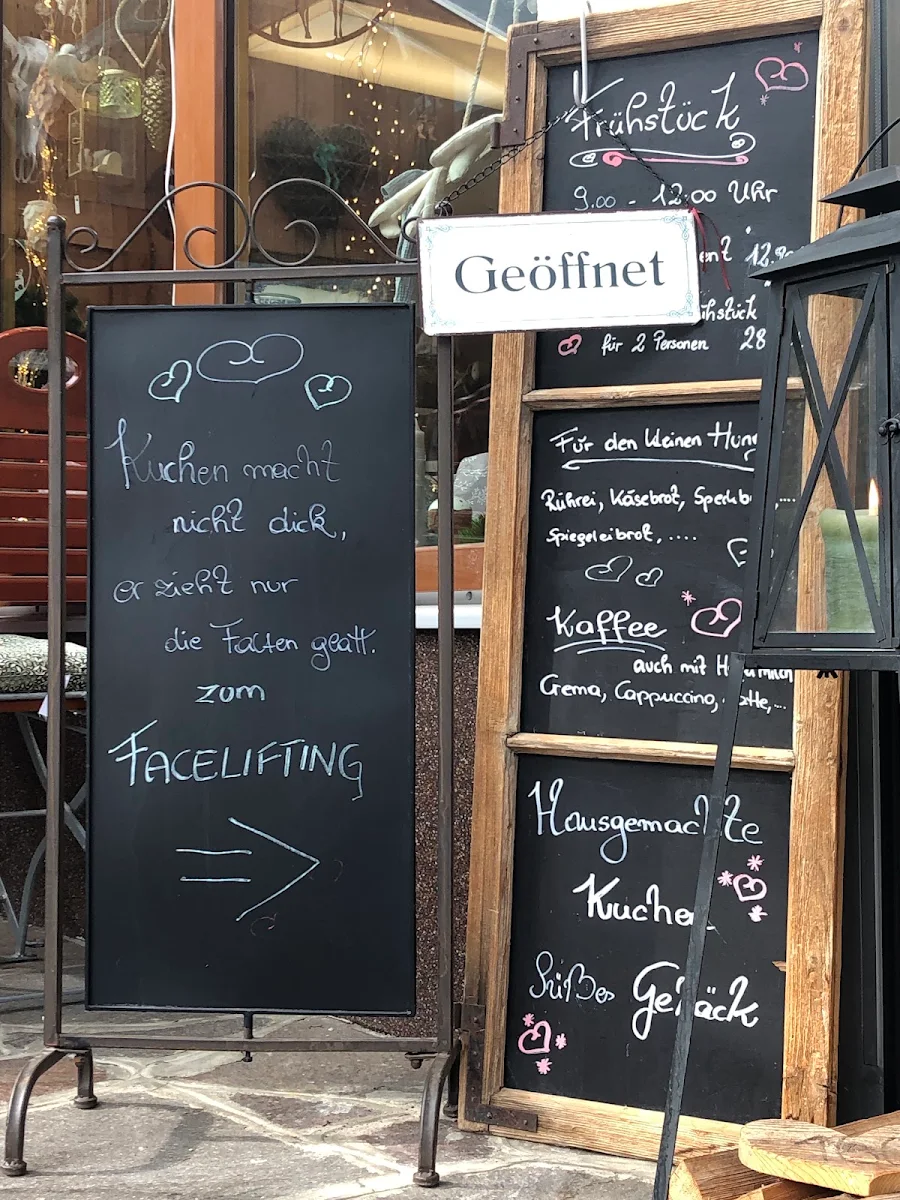 Kuchen macht
nicht dick,
er zieht nur
die Falten glatt.
zum
FACELIFTING
Geöffnet
Frühstück
9.00 - 12.00 Uhr
für 2 Personen 28
Für den kleinen
Rührei, Käsebrot,
Spiegeleibrot, ....
Kaffee
auch mit
Crema, Cappuccino,
Hausgemachte
Kuchen
Süßes Gebäck